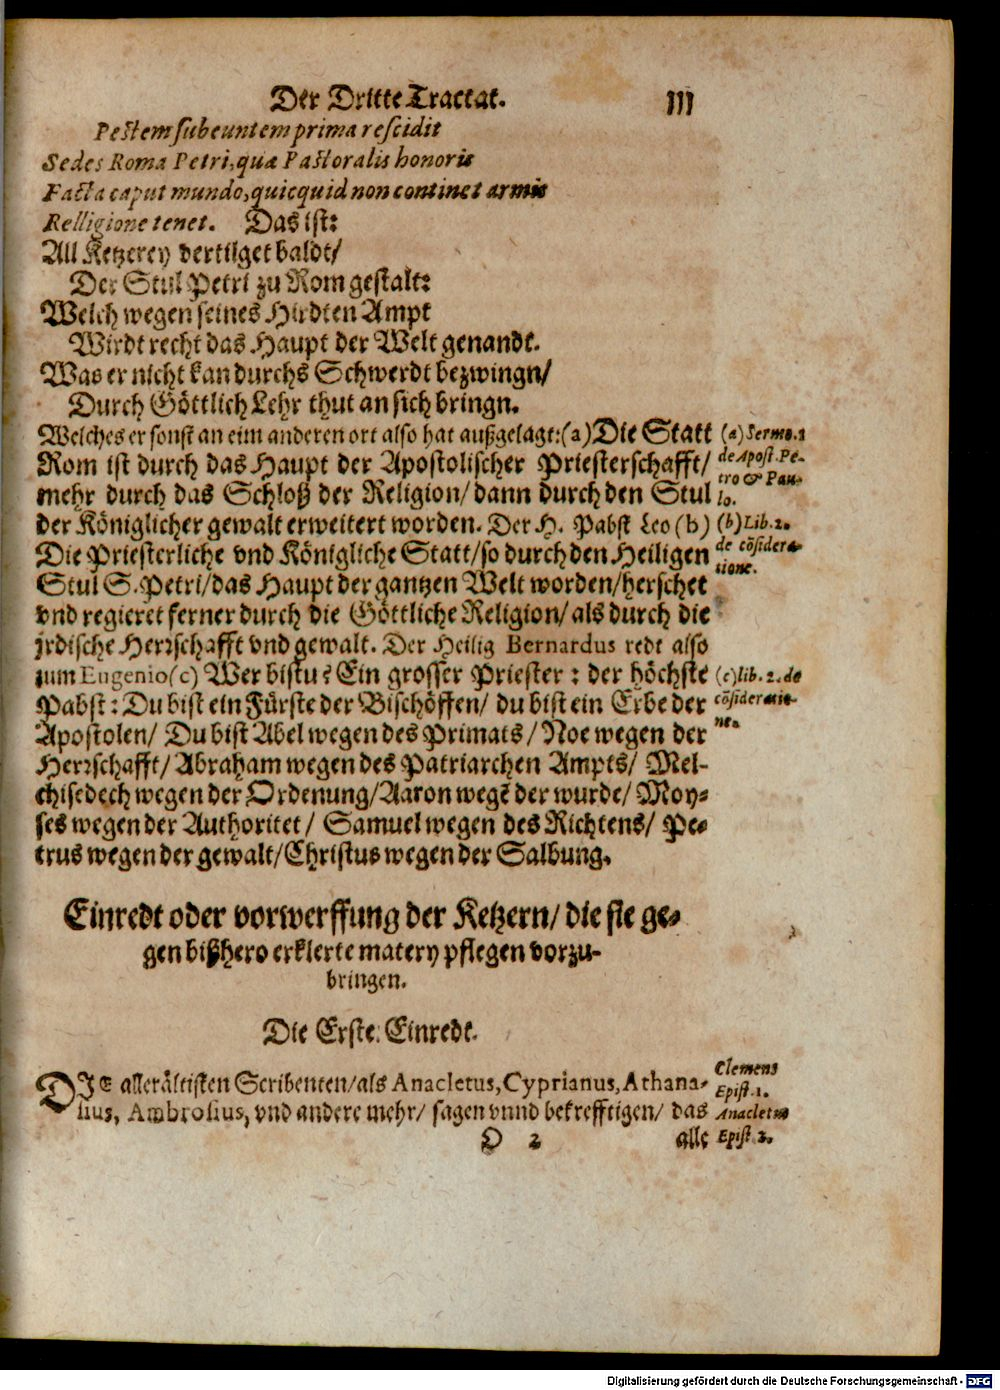 Der Dritte Tractat. 111
Pestem subeuntem prima rescidit
Sedes Roma Petri, quæ Pastoralis honoris
Facta caput mundo, quicquid non continet armis
Relligione tenet. Das ist:
All Ketzerey vertilget baldt/
Der Stul Petri zu Rom gestalt:
Welch wegen seines Hirdten Ampt
Wirdt recht das Haupt der Welt genandt.
Was er nicht kan durchs Schwerdt bezwingn/
Durch Göttlich Lehr thut an sich bringn.
Welches er sonst an eim anderen ort also hat außgelagt: (a) Die Statt
Rom ist durch das Haupt der Apostolischer Priesterschafft/
mehr durch das Schloß der Religion/ dann durch den Stul
der Königlicher gewalt erweitert worden. Der H. Pabst Leo (b)
Die Priesterliche vnd Königliche Statt/ so durch den Heiligen
Stul S. Petri/ das Haupt der gantzen Welt worden/ herschet
vnd regieret ferner durch die Göttliche Religion/ als durch die
jrdische Herrschafft vnd gewalt. Der Heilig Bernardus redt also
zum Eugenio (c) Wer bistu? Ein grosser Priester: der höchste
Pabst: Du bist ein Fürste der Bischöffen/ du bist ein Erbe der
Apostolen/ Du bist Abel wegen des Primats/ Noe wegen der
Herrschafft/ Abraham wegen des Patriarchen Ampts/ Mel-
chisedech wegen der Ordenung/ Aaron wegẽ der wurde/ Moy-
ses wegen der Authoritet/ Samuel wegen des Richtens/ Pe-
trus wegen der gewalt/ Christus wegen der Salbung.
(a) Sermo. 1
de Apost. Pe-
tro & Pau-
lo.
(b) Lib. 2.
de cõsidera-
tione.
(c) lib. 2. de
cõsideratio-
ne.
Einredt oder vorwerffung der Ketzern/ die sie ge-
gen bißhero erklerte matery pflegen vorzu-
bringen.
Die Erste Einredt.
DJe allerältisten Scribenten/ als Anacletus, Cyprianus, Athana-
sius, Ambrosius, vnd andere mehr/ sagen vnnd bekrefftigen/ das
Clemens
Epist. 1.
Anacletus
Epist. 3.
O 2 alle
Digitalisierung gefördert durch die Deutsche Forschungsgemeinschaft - DFG